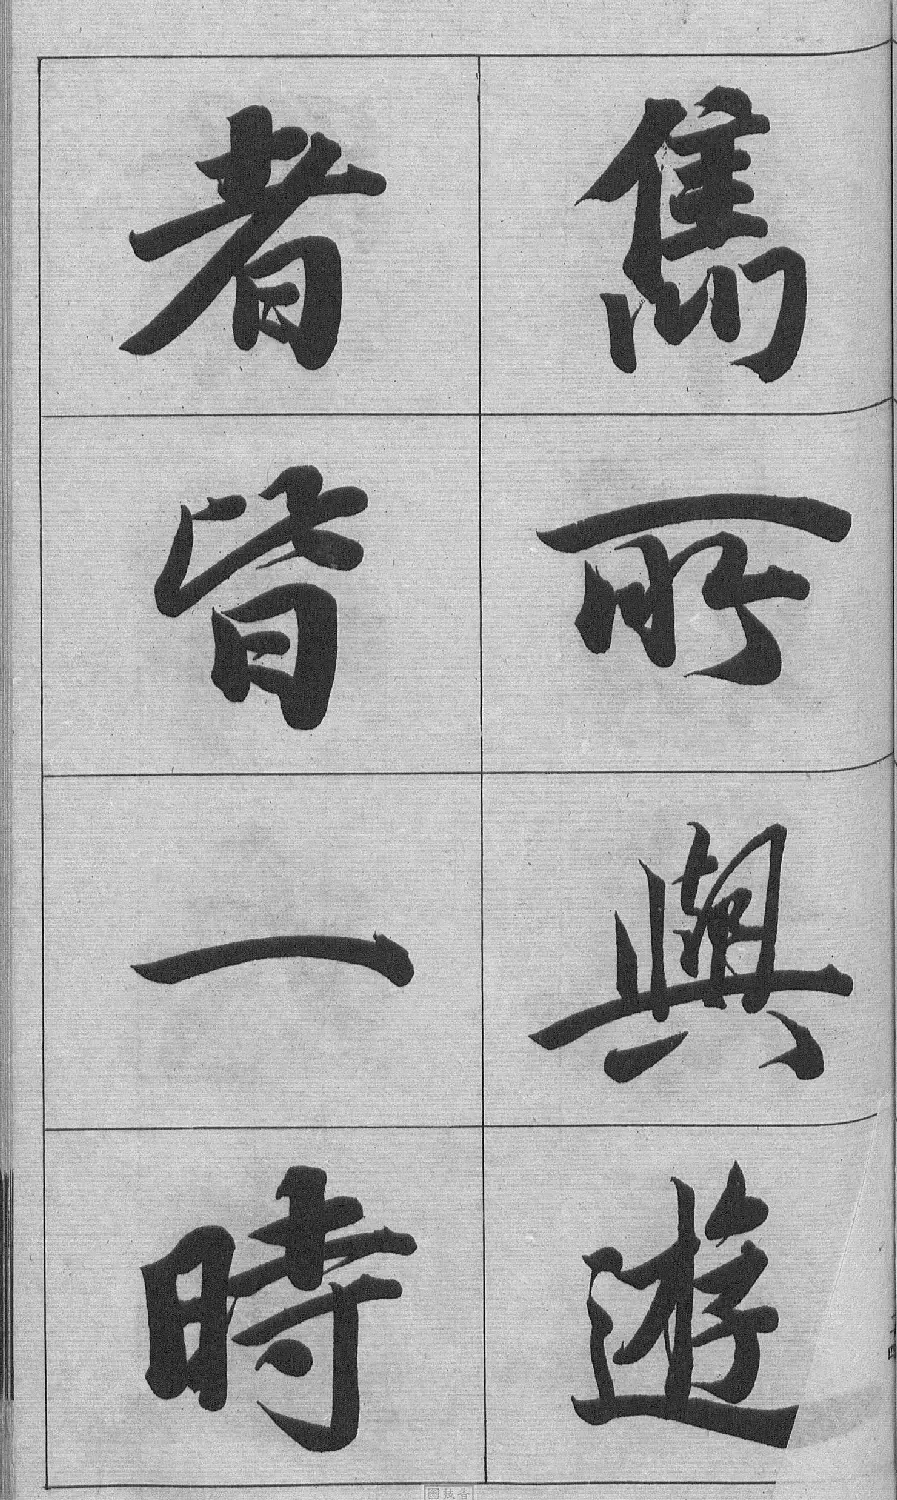 雋所與遊
者皆一時